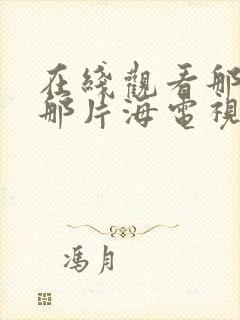 在綫觀看那
那片海電視
馮月